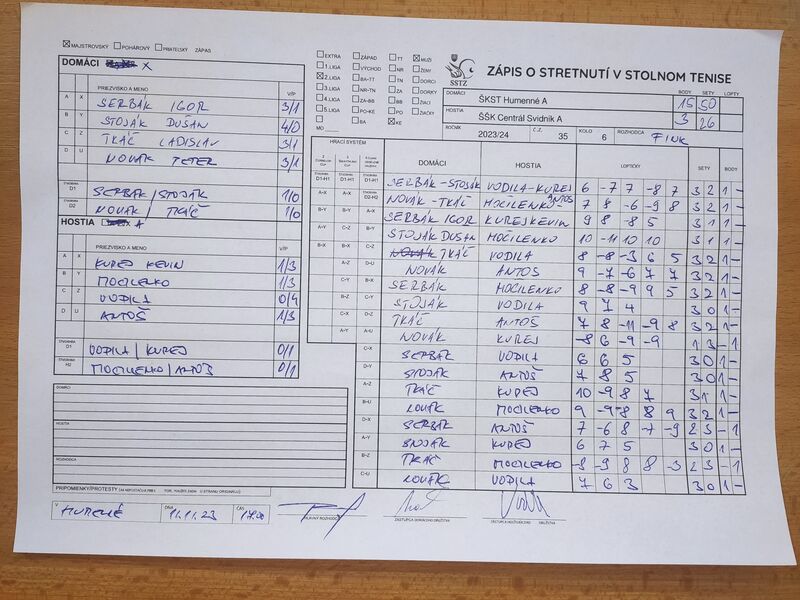 ☒ MAJSTROVSKÝ ☐ POHÁROVÝ ☐ PRIATEĽSKÝ ZÁPAS
DOMÁCI X
PRIEZVISKO A MENO V/P
A X SERBÁK IGOR 3/1
B Y STOJÁK DUŠAN 4/0
C Z TKÁČ LADISLAV 3/1
D U NOVÁK PETER 3/1
D1 SERBÁK/STOJÁK 1/0
D2 NOVÁK / TKÁČ 1/0
HOSTIA A
PRIEZVISKO A MENO V/P
A X KUREJ KEVIN 1/3
B Y MOCILENKO 1/3
C Z VODILA 0/4
D U ANTOŠ 1/3
D1 VODILA / KUREJ 0/1
H2 MOCILENKO/ANTOŠ 0/1
DOMÁCI
HOSTIA
ROZHODCA
PRIPOMIENKY/PROTESTY
V HUMENNÉ DŇA 11.11.23 ČAS 17.00
HLAVNÝ ROZHODCA
ZÁSTUPCA DOMÁCEHO DRUŽSTVA
ZÁSTUPCA HOSŤUJÚCEHO DRUŽSTVA
☐ EXTRA ☐ ZÁPAD ☐ TT ☒ MUŽI
☐ 1. LIGA ☐ VÝCHOD ☐ NR ☐ ŽENY
☒ 2.LIGA ☐ BA-TT ☐ TN ☐ DORCI
☐ 3.LIGA ☐ NR-TN ☐ ZA ☐ DORKY
☐ 4.LIGA ☐ ZA-BB ☐ BB ☐ ŽIACI
☐ 5.LIGA ☐ PO-KE ☐ PO ☐ ŽIAČKY
☐ ☐ BA ☒ KE
☐ MO
SSTZ
ZÁPIS O STRETNUTÍ V STOLNOM TENISE
BODY SETY LOFTY
DOMÁCI ŠKST Humenné A 15 50
HOSTIA ŠŠK Centrál Svidník A 3 26
ROČNÍK 2023/24 Č.Z. 35 KOLO 6 ROZHODCA FINK
HRACÍ SYSTÉM
DOMÁCI HOSTIA LOPTIČKY SETY BODY
D1-H1 D1-H1 D1-H1 SERBÁK-STOJÁK VODILA-KUREJ 6 -7 7 -8 7 3 2 1 -
A-X A-X D2-H2 NOVÁK - TKÁČ MOCILENKO ANTOŠ 7 8 -6 -9 8 3 2 1 -
B-Y B-Y A-X SERBÁK IGOR KUREJ KEVIN 9 8 -8 5 3 1 1 -
A-Y C-Z B-Y STOJÁK DUŠAN MOČILENKO 10 -11 10 10 3 1 1 -
B-X B-X C-Z TKÁČ VODILA 8 -8 -3 6 5 3 2 1 -
A-Z D-U NOVÁK ANTOŠ 9 -7 -6 7 7 3 2 1 -
C-Y B-X SERBÁK MOCILENKO 8 -8 -9 9 5 3 2 1 -
B-Z C-Y STOJÁK VODILA 9 7 4 3 0 1 -
C-X D-Z TKÁČ ANTOŠ 7 8 -11 -9 8 3 2 1 -
A-Y A-U NOVÁK KUREJ -8 6 -9 -9 1 3 - 1
C-X SERBÁK VODILA 6 6 5 3 0 1 -
D-Y STOJÁK ANTOŠ 7 8 5 3 0 1 -
A-Z TKÁČ KUREJ 10 -9 8 7 3 1 1 -
B-U NOVÁK MOCILENKO 9 -9 -8 8 9 3 2 1 -
D-X SERBÁK ANTOŠ 7 -6 8 -7 -9 2 3 - 1
A-Y STOJÁK KUREJ 6 7 5 3 0 1 -
B-Z TKÁČ MOCILENKO -9 9 8 8 -3 2 3 - 1
C-U NOVÁK VODILA 7 6 3 3 0 1 -